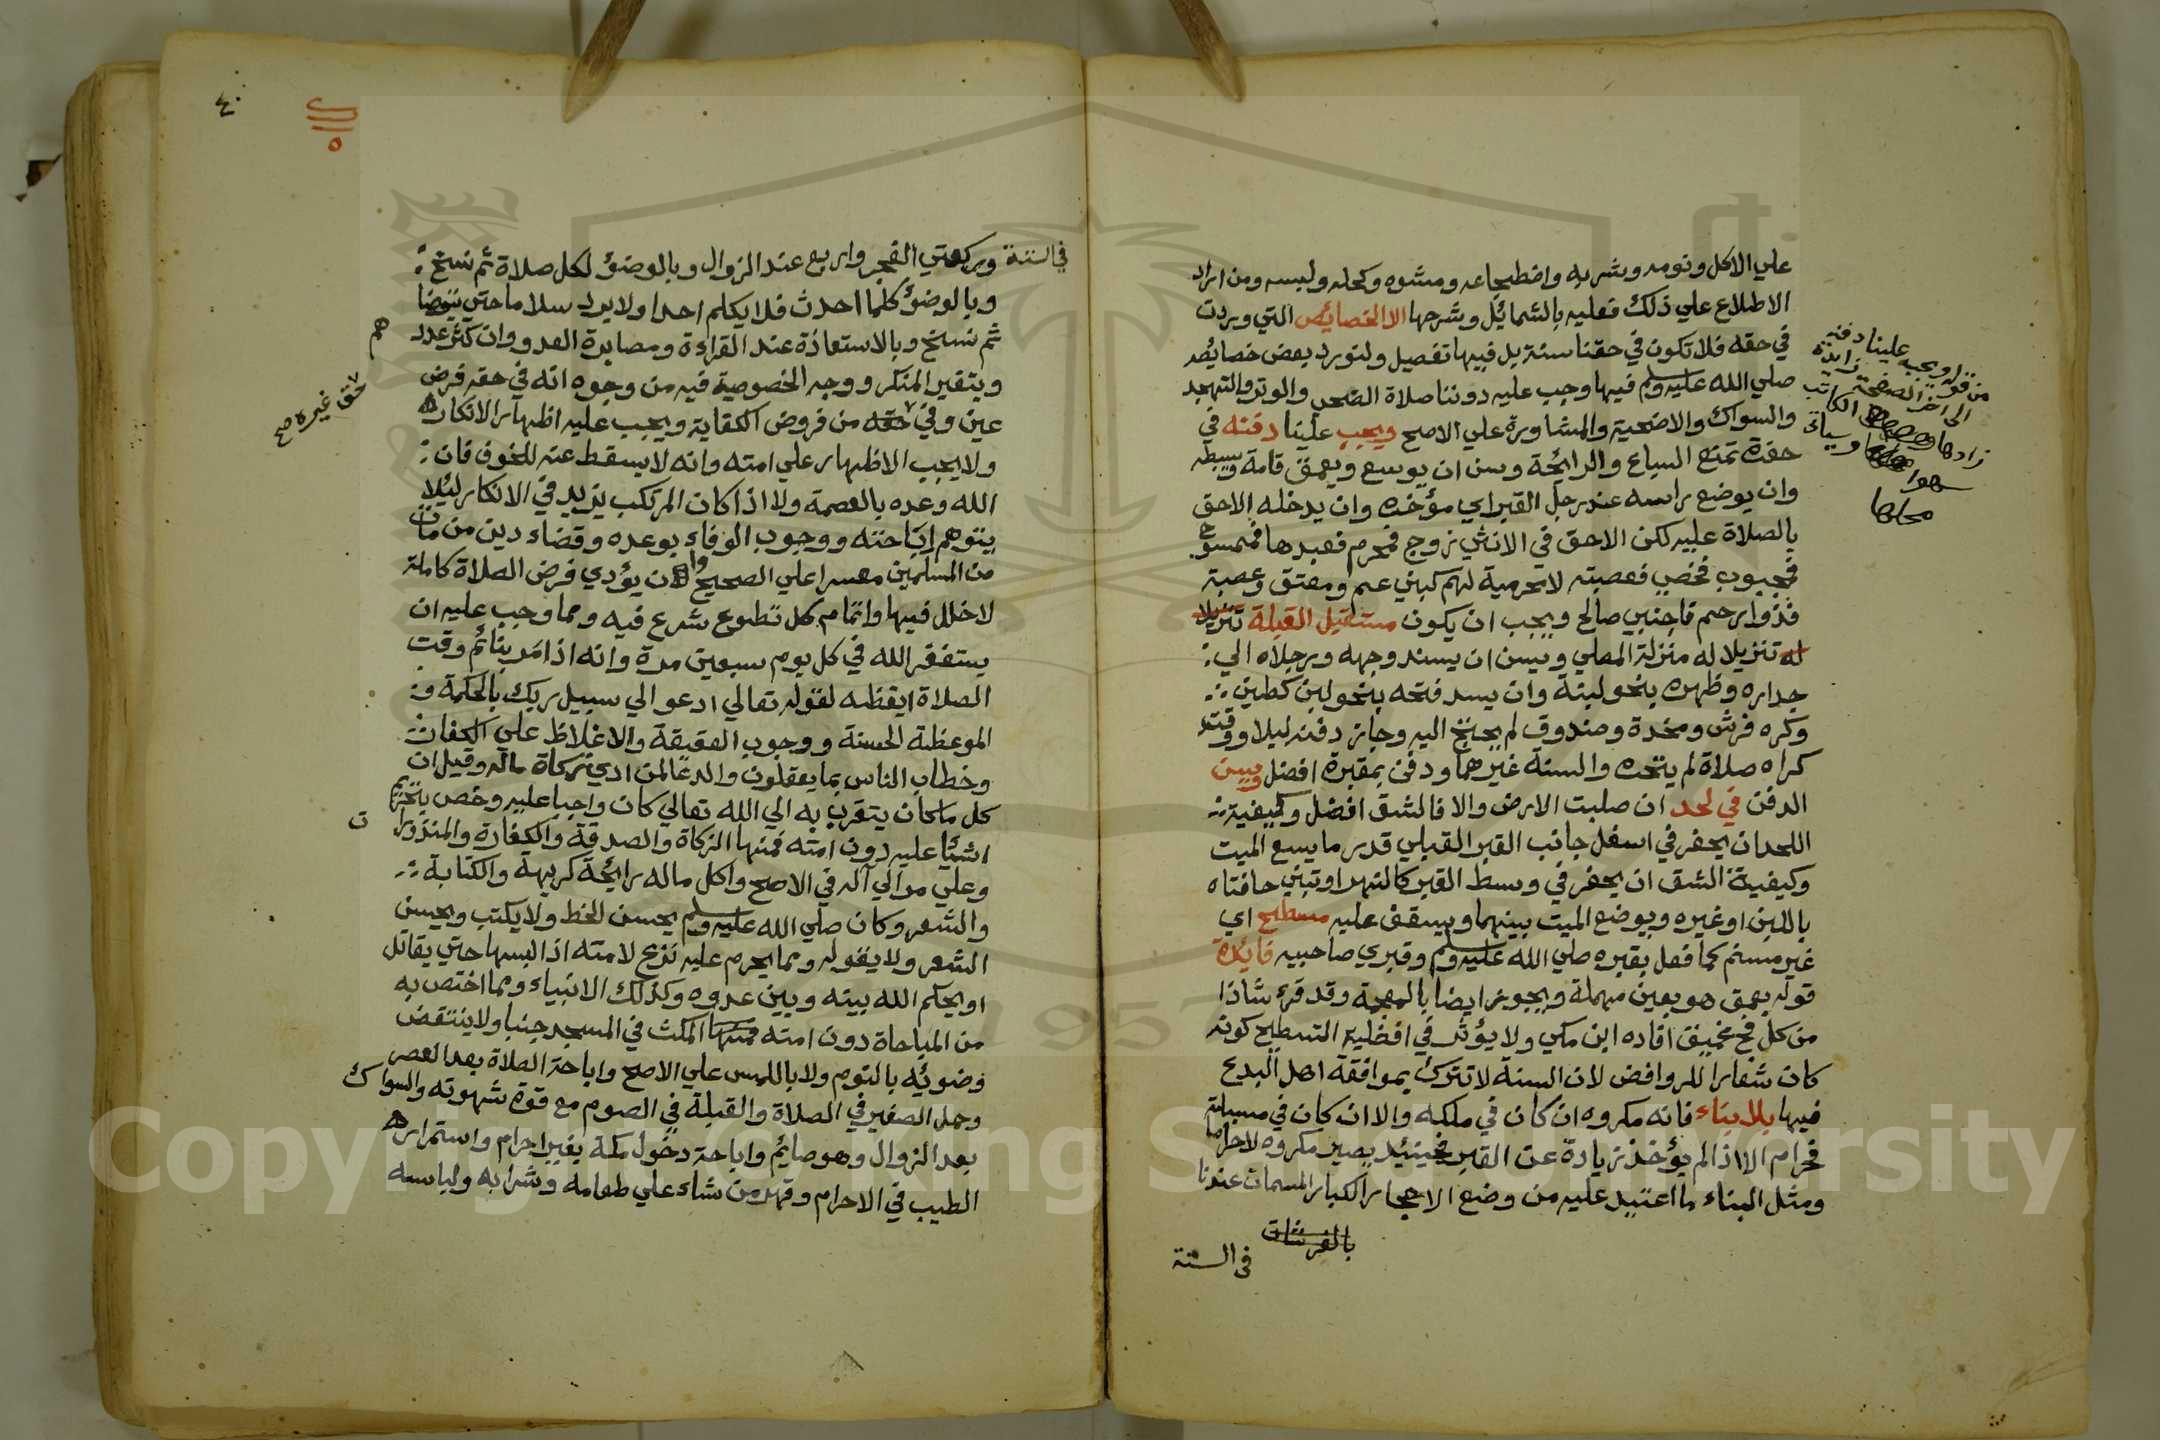 علي الاكل ونومه وشربه واضطجاعه ومشوه وكحله ولبسه ومن اراد
الاطلاع علي ذلك فعليه بالشمائل وشرحها الا الخصايص التي وردت
في حقه فلا تكون في حقنا سنة بل فيها تفصيل ولنورد بعض خصايصه
صلي الله عليه وسلم فيها وجب عليه دوننا صلاة الضحي والوتر والتهجد
والسواك والاضحية والمشاورة علي الاصح ويجب علينا دفنه في
حفرة تمنع السباع والرايحة وسن ان يوسع ويعمق قامة وبسطه
وان يوضع راسه عند رجل القبر اي مؤخره وان يدخله الاحق
بالصلاة عليه لكن الاحق في الانثي زوج فمحرم فعبدها فممسوح
فمجبوب فخصي فعصبته لا محرمية لهم كبني عم ومعتق وعصبة
فذوا رحم فاجنبي صالح ويجب ان يكون مستقبل القبلة تنزيلا
له تنزيلا له منزلة المصلي ويسن ان يسند وجهه ورجلاه الي
جداره وظهره بنحو لبنة وان يسد فتحه بنحو لبن كطين
وكره فرش ومخدة وصندوق لم يحتج اليه وجاز دفنه ليلا ووقت
كراه صلاة لم يتحره والسنة غيرهما ودفن بمقبرة افضل ويسن
الدفن في لحد ان صلبت الارض والا فالشق افضل وكيفية
اللحد ان يحفر في اسفل جانب القبر القبلي قدر ما يسع الميت
وكيفية الشق ان يحفر في وسط القبر كالنهر او تبني حافتاه
باللبن او غيره ويوضع الميت بينهما ويسقف عليه مسطح اي
غير مسنم كما فعل بقبره صلي الله عليه وسلم وقبري صاحبيه فايدة
قوله يعمق هو بعين مهملة ويجوز ايضا بالمعجمة وقد قرء شاذا
من كل فج غميق افاده ابن مكي ولا يؤثر في افضلية التسطيح كونه
كان شعارا للروافض لان السنة لا تترك بموافقة اهل البدع
فيها بلا بناء فانه مكروه ان كان في ملكه والا ان كان في مسبلة
فحرام الا اذا لم يؤخذ زيادة عن القبر فحينئذ يصير مكروه لا حراما
ومثل البناء ما اعتيد عليه من وضع الاحجار الكبار المسمات عندنا
بالفرشات
في السنة
من قوله ويجب علينا دفنه
الي اخر الصفحة زايدة
زادها الكاتب
سهوا وسياتي
محلها
٤٠
في السنة وركعتي الفجر واربع عند الزوال وبالوضؤ لكل صلاة ثم نسخ
وبالوضؤ كلما احدث فلا يكلم احدا ولا يرد سلاما حتي يتوضا
ثم نسخ وبالاستعاذة عند القراءة ومصابرة العدو وان كثر عددهم
وبتغير المنكر ووجه الخصوصية فيه من وجوه انه في حقه فرض
عين وفي حقه من فروض الكفاية ويجب عليه اظهار الانكار
ولا يجب الاظهار علي امته وانه لا يسقط عنه للخوف فان
الله وعده بالعصمة ولا اذا كان المرتكب يزيد في الانكار ليئلا
يتوهم اباحته ووجوب الوفاء بوعده وقضاء دين من مات
من المسلمين معسرا علي الصحيح وان يؤدي فرض الصلاة كاملة
لا خلل فيها واتمام كل تطوع شرع فيه ومما وجب عليه ان
يستغفر الله في كل يوم سبعين مرة وانه اذا مر بنائم وقت
الصلاة ايقظه لقوله تعالي ادعوا الي سبيل ربك بالحكمة و
الموعظة الحسنة ووجوب العقيقة والاغلاظ علي الكفار
وخطاب الناس بما يعقلون والدعا لمن ادي زكاة ماله وقيل ان
كل ما كان يتقرب به الي الله تعالي كان واجبا عليه وخص بتحريم
اشيا عليه دون امته فمنها الزكاة والصدقة والكفارة والمنذورات
وعلي موالي اله في الاصح واكل ماله رايحة كريهة والكتابة
والشعر وكان صلي الله عليه وسلم يحسن الخط ولا يكتب ويحسن
الشعر ولا يقوله ومما يحرم عليه نزع لامته اذا لبسها حتي يقاتل
او يحكم الله بينه وبين عدوه وكذلك الانبياء ومما اختص به
من المباحاة دون امته فمنها المكث في المسجد جنبا ولا ينتقض
وضوئه بالنوم ولا باللمس علي الاصح واباحة الصلاة بعد العصر
وحمل الصغير في الصلاة والقبلة في الصوم مع قوة شهوته والسواك
بعد الزوال وهو صايم واباحة دخول مكة بغير احرام واستمراره
الطيب في الاحرام وقهر من شاء علي طعامه وشرابه ولباسه
حق غيره صح
Copyright © King Saud University
1957